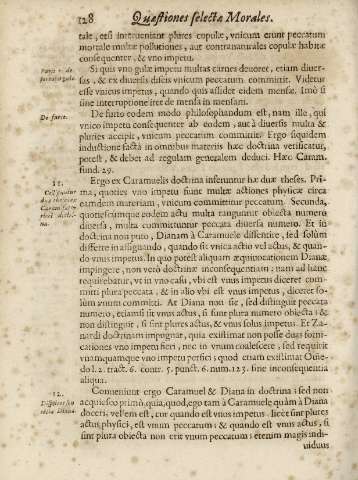 128 Quæstiones selectæ Morales.
tale, etsi interueniant plures copulæ, vnicum erunt peccatum
mortale multæ pollutiones, aut contranaturales copulæ habitæ
consequenter, & vno impetu.
Si quis vno gulæ impetu multas carnes deuoret, etiam diuer-
sas, & ex diuersis discis vnicum peccatum committit. Videtur
esse vnicus impetus, quando quis assidet eidem mensæ. Imò si
sine interruptione iret de mensa in mensam.
De furto.
De furto eodem modo philosophandum est, nam ille, qui
vnico impetu consequenter ab eodem, aut à diuersis multa &
pluries accipit, vnicum peccatum committit. Ergo siquidem
inductione facta in omnibus materiis hæc doctrina verificatur,
potest, & debet ad regulam generalem deduci. Hæc Caram.
fund. 29.
11.
Ergo ex Caramuelis doctrina inferuntur hæ duæ theses. Pri-
ma, quoties vno impetu fiunt multæ actiones physicæ circa
eamdem materiam, vnicum committitur peccatum. Secunda,
quotiescumque eodem actu multa tanguntur obiecta numero
diuersa, multa committuntur peccata diuersa numero. Et in
doctrina non puto, Dianam à Caramuele dissentire, sed solùm
differre in assignando, quando sit vnica actio vel actus, & quan-
do vnus impetus. In quo potest aliquam æquiuocationem Dianæ
impingere, non verò doctrinæ inconsequentiam: nam ad hanc
requirebatur, vt in vno casu, vbi est vnus impetus diceret com-
mitti plura peccata, & in alio vbi est vnus impetus, diceret so-
lùm vnum committi. At Diana non sic, sed distinguit peccata
numero, etiamsi sit vnus actus, si sunt plura numero obiecta: &
non distinguit, si sint plures actus, & vnus solus impetus. Et Za-
nardi doctrinam impugnat, quia existimat non posse duas forni-
cationes vno impetu fieri, nec in vnum coalescere, sed requirit
vnamquamque vno impetu perfici; quod etiam existimat Ouie-
do 1. 2. tract. 6. contr. 5. punct. 6. num. 123. sine inconsequentia
aliqua.
12.
Conueniunt ergo Caramuel & Diana in doctrina: sed non
acquiesco primò, quia, quod, ego tam à Caramuele quàm à Diana
doceri, vellem est, cur quando est vnus impetus, licèt sint plures
actus physici, est vnum peccatum: & quando est vnus actus, si
sint plura obiecta non erit vnum peccatum: etenim magis indi-
uiduus